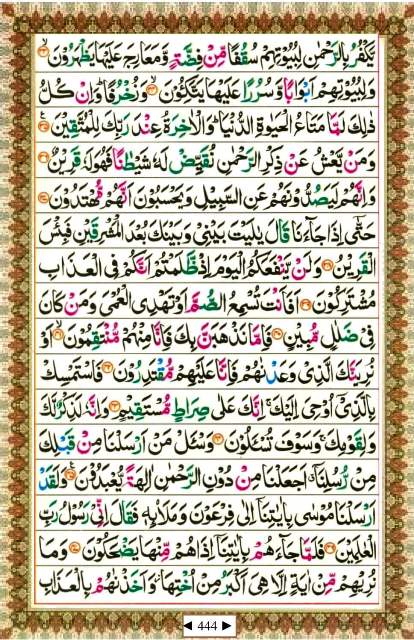 يَّكْفُرُ بِالرَّحْمٰنِ لِبُيُوْتِهِمْ سُقُفًا مِّنْ فِضَّةٍ وَّمَعَارِجَ عَلَيْهَا يَظْهَرُوْنَ ۝۳۳
وَلِبُيُوْتِهِمْ اَبْوَابًا وَّسُرُرًا عَلَيْهَا يَتَّكِــُٔوْنَ ۝۳۴ وَزُخْرُفًا ؕ وَاِنْ كُلُّ
ذٰلِكَ لَمَّا مَتَاعُ الْحَيٰوةِ الدُّنْيَا ؕ وَالْاٰخِرَةُ عِنْدَ رَبِّكَ لِلْمُتَّقِيْنَ ۝۳۵
وَمَنْ يَّعْشُ عَنْ ذِكْرِ الرَّحْمٰنِ نُقَيِّضْ لَهٗ شَيْطٰنًا فَهُوَ لَهٗ قَرِيْنٌ ۝۳۶
وَاِنَّهُمْ لَيَصُدُّوْنَهُمْ عَنِ السَّبِيْلِ وَيَحْسَبُوْنَ اَنَّهُمْ مُّهْتَدُوْنَ ۝۳۷
حَتّٰۤى اِذَا جَآءَنَا قَالَ يٰلَيْتَ بَيْنِيْ وَبَيْنَكَ بُعْدَ الْمَشْرِقَيْنِ فَبِئْسَ
الْقَرِيْنُ ۝۳۸ وَلَنْ يَّنْفَعَكُمُ الْيَوْمَ اِذْ ظَّلَمْتُمْ اَنَّكُمْ فِي الْعَذَابِ
مُشْتَرِكُوْنَ ۝۳۹ اَفَاَنْتَ تُسْمِعُ الصُّمَّ اَوْ تَهْدِي الْعُمْيَ وَمَنْ كَانَ
فِيْ ضَلٰلٍ مُّبِيْنٍ ۝۴۰ فَاِمَّا نَذْهَبَنَّ بِكَ فَاِنَّا مِنْهُمْ مُّنْتَقِمُوْنَ ۝۴۱ اَوْ
نُرِيَنَّكَ الَّذِيْ وَعَدْنٰهُمْ فَاِنَّا عَلَيْهِمْ مُّقْتَدِرُوْنَ ۝۴۲ فَاسْتَمْسِكْ
بِالَّذِيْۤ اُوْحِيَ اِلَيْكَ ۚ اِنَّكَ عَلٰى صِرَاطٍ مُّسْتَقِيْمٍ ۝۴۳ وَاِنَّهٗ لَذِكْرٌ لَّكَ
وَلِقَوْمِكَ ۚ وَسَوْفَ تُسْـَٔلُوْنَ ۝۴۴ وَسْـَٔلْ مَنْ اَرْسَلْنَا مِنْ قَبْلِكَ
مِنْ رُّسُلِنَاۤ اَجَعَلْنَا مِنْ دُوْنِ الرَّحْمٰنِ اٰلِهَةً يُّعْبَدُوْنَ ۝۴۵ وَلَقَدْ
اَرْسَلْنَا مُوْسٰى بِاٰيٰتِنَاۤ اِلٰى فِرْعَوْنَ وَمَلَا۟ئِهٖ فَقَالَ اِنِّيْ رَسُوْلُ رَبِّ
الْعٰلَمِيْنَ ۝۴۶ فَلَمَّا جَآءَهُمْ بِاٰيٰتِنَاۤ اِذَا هُمْ مِّنْهَا يَضْحَكُوْنَ ۝۴۷ وَمَا
نُرِيْهِمْ مِّنْ اٰيَةٍ اِلَّا هِيَ اَكْبَرُ مِنْ اُخْتِهَا ؗ وَاَخَذْنٰهُمْ بِالْعَذَابِ
◄ 444 ►